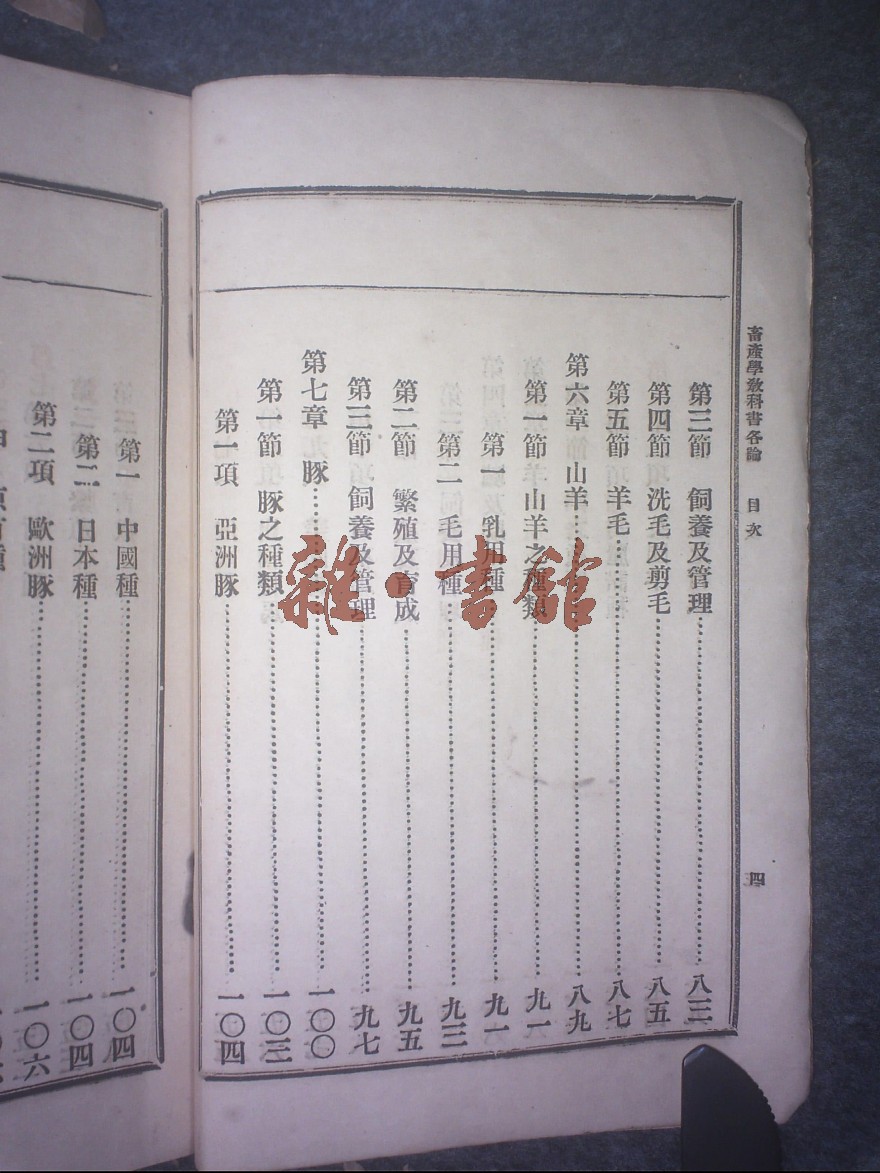 畜產學教科書各論 目次 四
第三節 飼養及管理 八三
第四節 洗毛及剪毛 八五
第五節 羊毛 八七
第六章 山羊 八九
第一節 山羊之種類 九一
第一 乳用種 九一
第二 毛用種 九三
第二節 繁殖及育成 九五
第三節 飼養及管理 九七
第七章 豚 一〇〇
第一節 豚之種類 一〇三
第一項 亞洲豚 一〇四
第一 中國種 一〇四
第二 日本種 一〇四
第二項 歐洲豚 一〇六
雜·書館